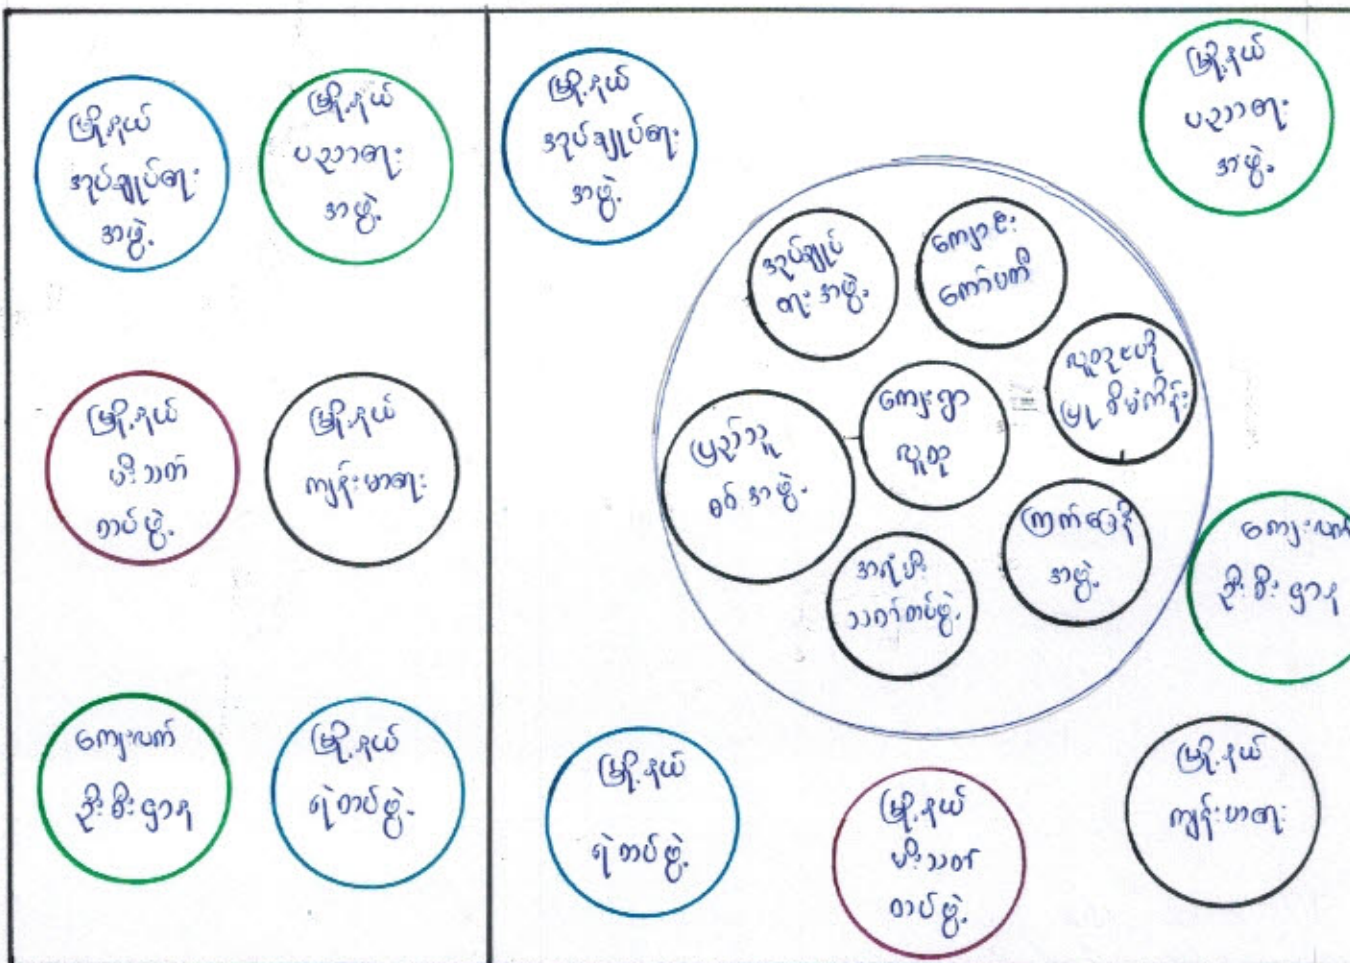 မြို့နယ်
အုပ်ချုပ်ရေး
အဖွဲ့
မြို့နယ်
ပညာရေး
အဖွဲ့
မြို့နယ်
မီးသတ်
တပ်ဖွဲ့
မြို့နယ်
ကျန်းမာရေး
ကျေးလက်
ဦးစီးဌာန
မြို့နယ်
ရဲတပ်ဖွဲ့
မြို့နယ်
အုပ်ချုပ်ရေး
အဖွဲ့
မြို့နယ်
ပညာရေး
အဖွဲ့
အုပ်ချုပ်
ရေးအဖွဲ့
ကျောင်း
ကော်မတီ
လူထုဗဟို
ပြုစီမံကိန်း
ကျေးရွာ
လူထု
ပြည်သူ့
စစ်အဖွဲ့
ကြက်ခြေနီ
အဖွဲ့
အရံမီး
သတ်တပ်ဖွဲ့
ကျေးလက်
ဦးစီးဌာန
မြို့နယ်
ရဲတပ်ဖွဲ့
မြို့နယ်
မီးသတ်
တပ်ဖွဲ့
မြို့နယ်
ကျန်းမာရေး